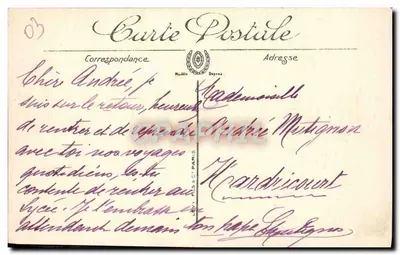 03
Carte Postale
Correspondance
Adresse
Modèle Déposé
Chère Andrée, je
suis sur le retour, heureux
de rentrer et de reprendre
avec toi nos voyages
quotidiens, es-tu
contente de rentrer au
Lycée. Je t'embrasse en
attendant demain
ton papa
Mademoiselle
Andrée Mutignon
Hardricourt